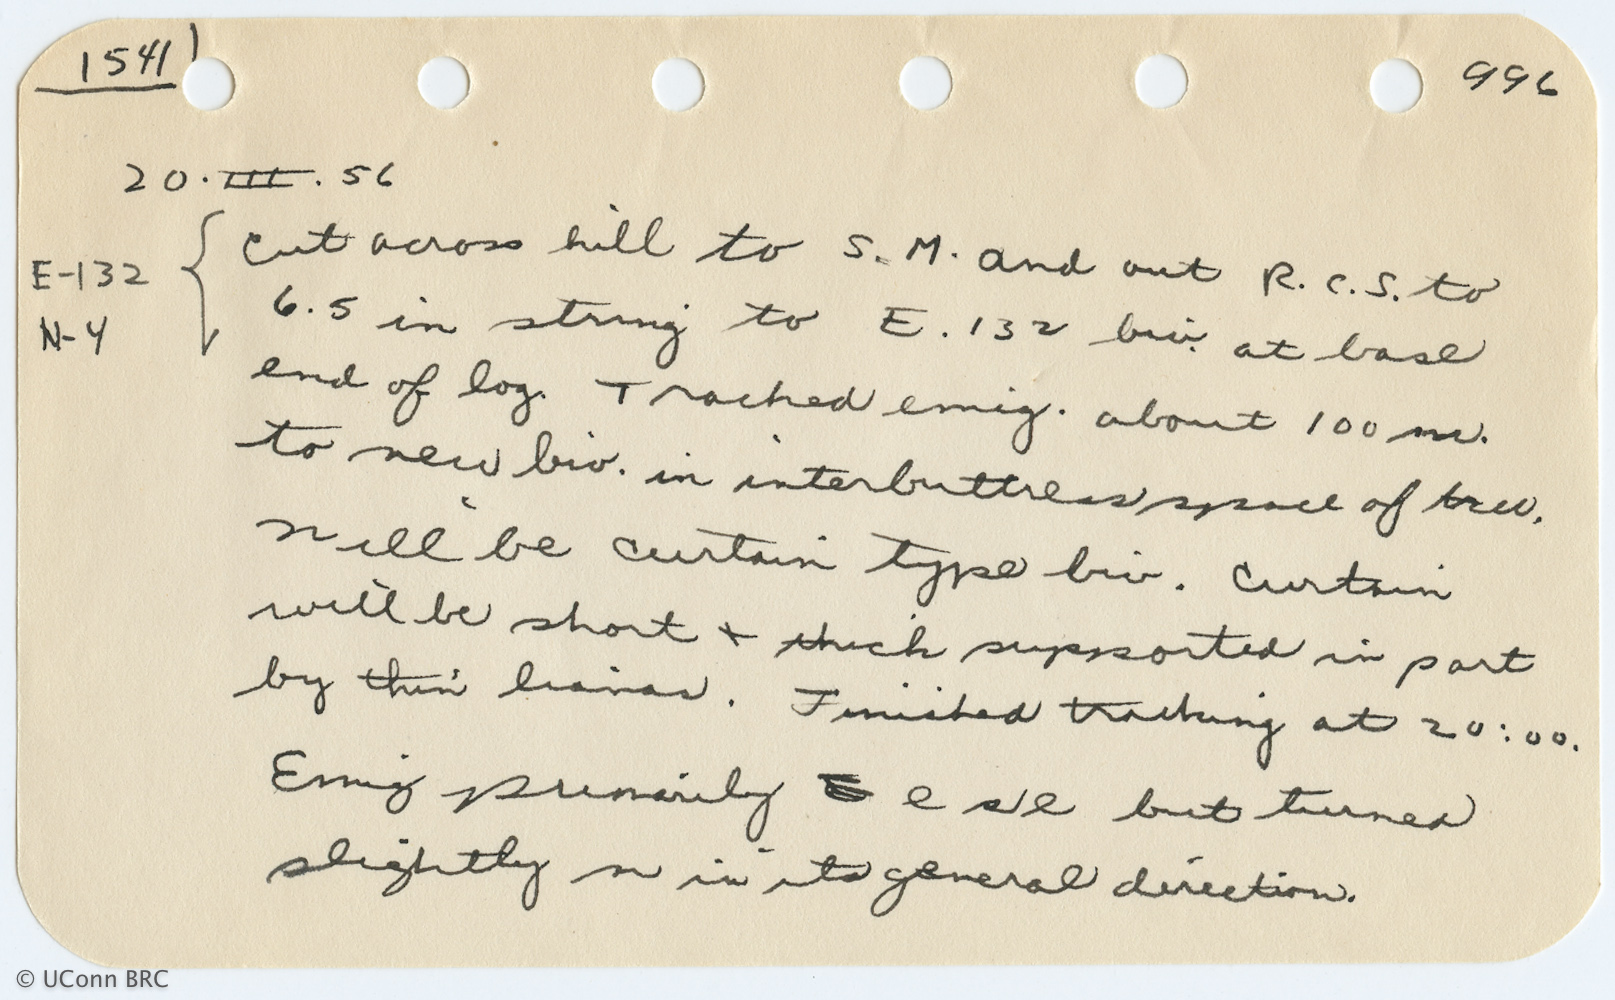 1541
996
20.III.56
E-132
N-4
Cut across hill to S.M. and out R.C.S. to
6.5 in string to E.132 biv. at base
end of log. Tracked emig. about 100 m.
to new biv. in interbuttress space of tree.
Will be curtain type biv. Curtain
will be short + thick supported in part
by thin lianas. Finished tracking at 20:00.
Emig primarily e se but turned
slightly n in its general direction.
© UConn BRC